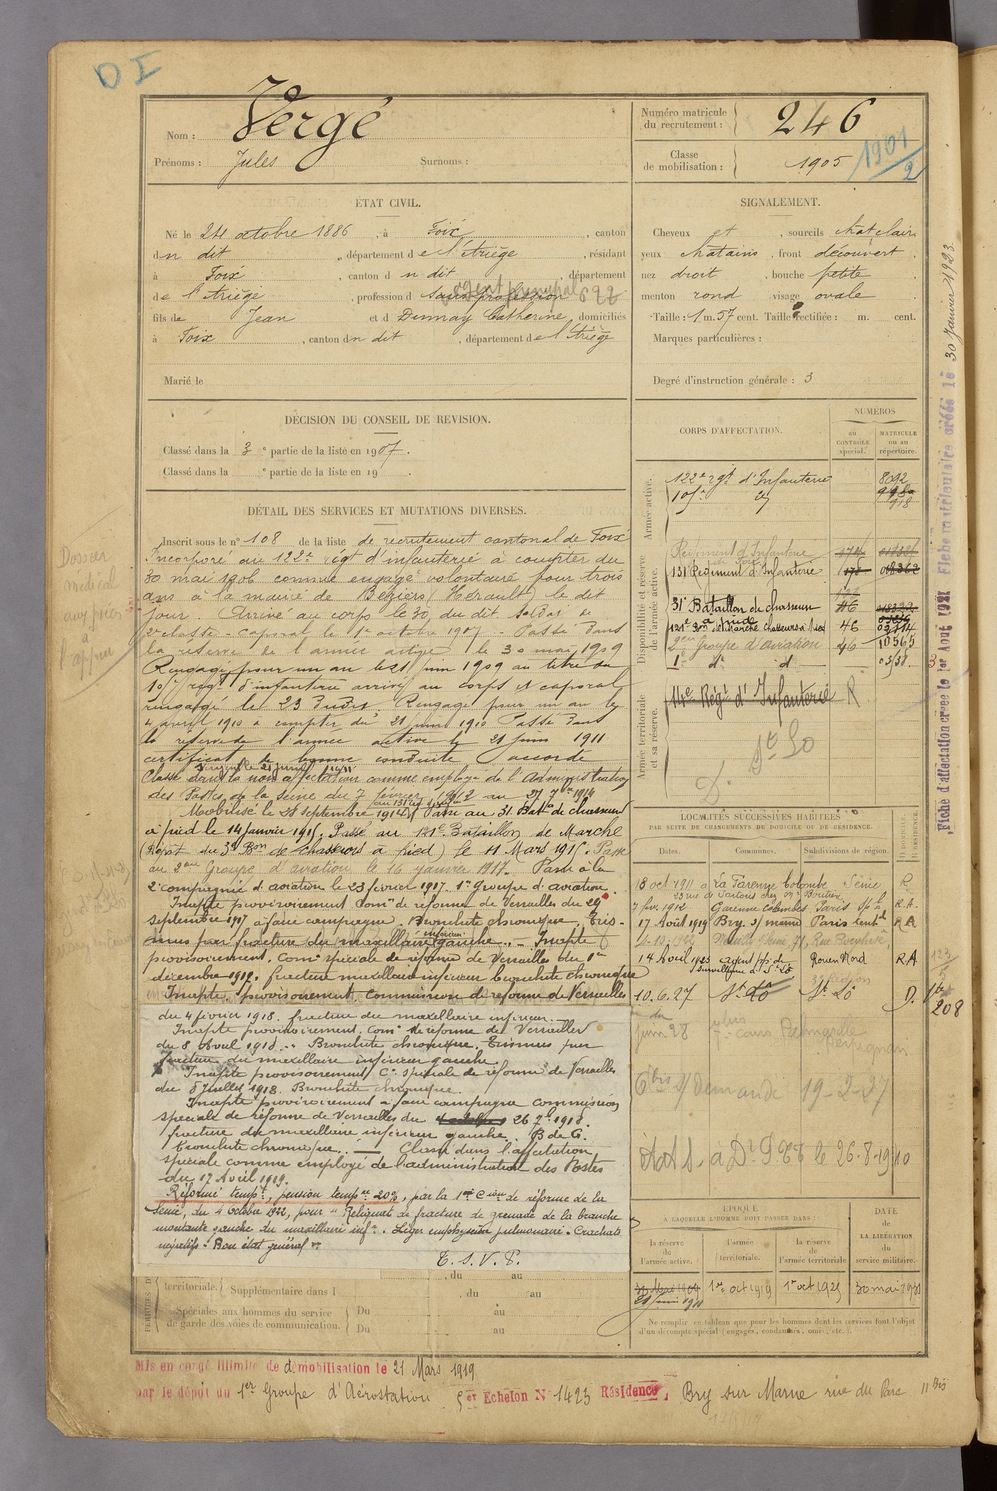 DI
Nom : Vergé
Prénoms : Jules Surnoms :
Numéro matricule du recrutement : 246
Classe de mobilisation : 1905 1901/2
ÉTAT CIVIL.
Né le 24 octobre 1886, à Foix, canton
dn dit, département de l'Ariège, résidant
à Foix, canton dn dit, département
de l'Ariège, profession d sans profession agent principal 692
fils de Jean et d Dunnay Catherine, domiciliés
à Foix, canton dn dit, département de l'Ariège
Marié le
SIGNALEMENT.
Cheveux et, sourcils chat clair
yeux chatains, front découvert
nez droit, bouche petite
menton rond visage ovale
Taille : 1 m. 57 cent. Taille rectifiée : m. cent.
Marques particulières :
Degré d'instruction générale : 3
DÉCISION DU CONSEIL DE REVISION.
Classé dans la 3e partie de la liste en 1907.
Classé dans la e partie de la liste en 19
DÉTAIL DES SERVICES ET MUTATIONS DIVERSES.
Inscrit sous le n° 108 de la liste de recrutement cantonal de Foix
Incorporé au 122e régt d'infanterie à compter du
30 mai 1906 comme engagé volontaire pour trois
ans à la mairie de Béziers (Hérault) le dit
jour Arrivé au corps le 30 du dit soldat de
2e classe - Caporal le 1er octobre 1907 - Passé dans
la réserve de l'armée active le 30 mai 1909
Rengagé pour un an le 21 juin 1909 au titre du
régt d'infanterie arrivé au corps et caporal
rengagé le 23 Rengagé pour un an le
4 avril 1910 à compter du 21 juin 1910 Passé dans
la réserve de l'armée active le 21 juin 1911
certificat de bonne conduite accordé
Classé dans la non affectation comme employé de l'Administration
des Postes de la Seine du 7 février 1912 au 27 7bre 1914
Mobilisé le 28 septembre 1914 au 131 Passé au 31 Batn de chasseurs
à pied le 14 janvier 1915. Passé au 121e Bataillon de Marche
(Dépôt du 31 Bon de chasseurs à pied) le 11 Mars 1915. Passé
au 2me Groupe d'aviation le 16 janvier 1917. Passé à la
2e compagnie d'aviation le 23 février 1917. 1er Groupe d'aviation.
Inapte provisoirement Comon de réforme de Versailles du 29
septembre 1917 à faire campagne. Bronchite chronique. Tris-
mus par fracture du maxillaire inférieur gauche. - Inapte
provisoirement. Comon spéciale de réforme de Versailles du 1er
décembre 1917. fracture maxillaire inférieur bronchite chronique
Inapte provisoirement. Commission de réforme de Versailles
du 4 février 1918. fracture du maxillaire inférieur.
Inapte provisoirement. Comon de réforme de Versailles
du 8 Avril 1918. Bronchite chronique. Trismus par
fracture du maxillaire inférieur gauche.
Inapte provisoirement Con spéciale de réforme de Versailles
du 8 juillet 1918. Bronchite chronique
Inapte provisoirement à faire campagne Commission
spéciale de réforme de Versailles du 26 7b 1918.
fracture du maxillaire inférieur gauche. B de G.
bronchite chronique. - Classé dans l'affectation
spéciale comme employé de l'administration des Postes
du 17 Avril 1919.
Réformé tempe, pension tempre 20%, par la 1ère Cion de réforme de la
Seine, du 4 octobre 1922, pour "Reliquat de fracture de grenade de la branche
montante gauche du maxillaire infr. Léger emphysème pulmonaire. Crachats
négatifs. Bon état général"
T. S. V. P.
du au
territoriale. Supplémentaire dans l , du au
Spéciales aux hommes du service de garde des voies de communication. Du au
Du au
CORPS D'AFFECTATION.
NUMÉROS
AU CONTRÔLE spécial.
MATRICULE OU AU répertoire.
Armée active.
122e régt d'Infanterie 8092
dº 918
Disponibilité et réserve de l'armée active.
Régiment d'Infanterie
131 Régiment d'Infanterie
31e Bataillon de chasseurs à pied 46
121e Bon de Marche Chasseurs à pied 46
2me Groupe d'aviation 46 10565
1 dº dº
Armée territoriale et sa réserve.
Régt d'Infanterie R
Dt Lo
D.
LOCALITÉS SUCCESSIVES HABITÉES
PAR SUITE DE CHANGEMENTS DE DOMICILE OU DE RÉSIDENCE.
Dates. Communes. Subdivisions de région.
18 oct 1911 La Garenne Colombe Seine R
7 fév 1912 Garenne Colombes Paris R.A.
17 Août 1919 Bry s/ marne Paris Centl RA
14 Août 1925 agent pp. de surveillance à St Lô Rouen Nord RA
10.6.27 St Lô St Lô D. 208
Juin 28 Perpignan
6 bis s/ demande 19-2-27
26-8-1940
ÉPOQUE
A LAQUELLE L'HOMME DOIT PASSER DANS :
DATE de LA LIBÉRATION du service militaire.
la réserve de l'armée active.
l'armée territoriale.
la réserve de l'armée territoriale
21 juin 1911
1er oct 1919
1er oct 1925
30 mai 1931
Ne remplir ce tableau que pour les hommes dont les services font l'objet
d'un décompte spécial (engagés, condamnés, omis, etc.).
Mis en congé illimité de démobilisation le 21 Mars 1919
par le dépôt du 1er Groupe d'Aérostation 5er Echelon N° 1423 Résidence, Bry sur Marne rue du Parc 11 bis
Fiche d'affectation créée le 1er Aout 1921 Fiche matriculaire créée le 30 Janvier 1923.
Dossier médical